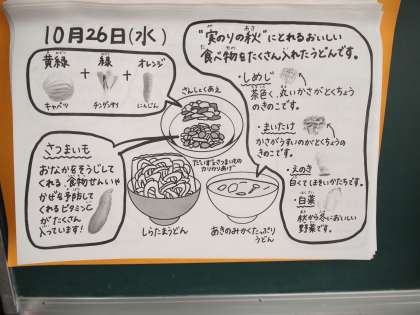 10月26日(水)
黄緑 緑 オレンジ
+ +
キャベツ チンゲンサイ にんじん
さんしょくあえ
さつまいも
おなかをそうじして
くれる、食物せんいや
かぜを予防して
くれるビタミンC
がたくさん
入っています!
だいずとさつまいもの
カリカリあげ
しらたまうどん
あきのみかくたっぷり
うどん
"実のりの秋"にとれるおいしい
食べ物をたくさん入れたうどんです。
・しめじ
茶色く、丸いかさがとくちょう
のきのこです。
・まいたけ
かさがうすいのがとくちょうの
きのこです。
・えのき
白くてほそいかたちです。
・白菜
秋から冬においしい
野菜です。